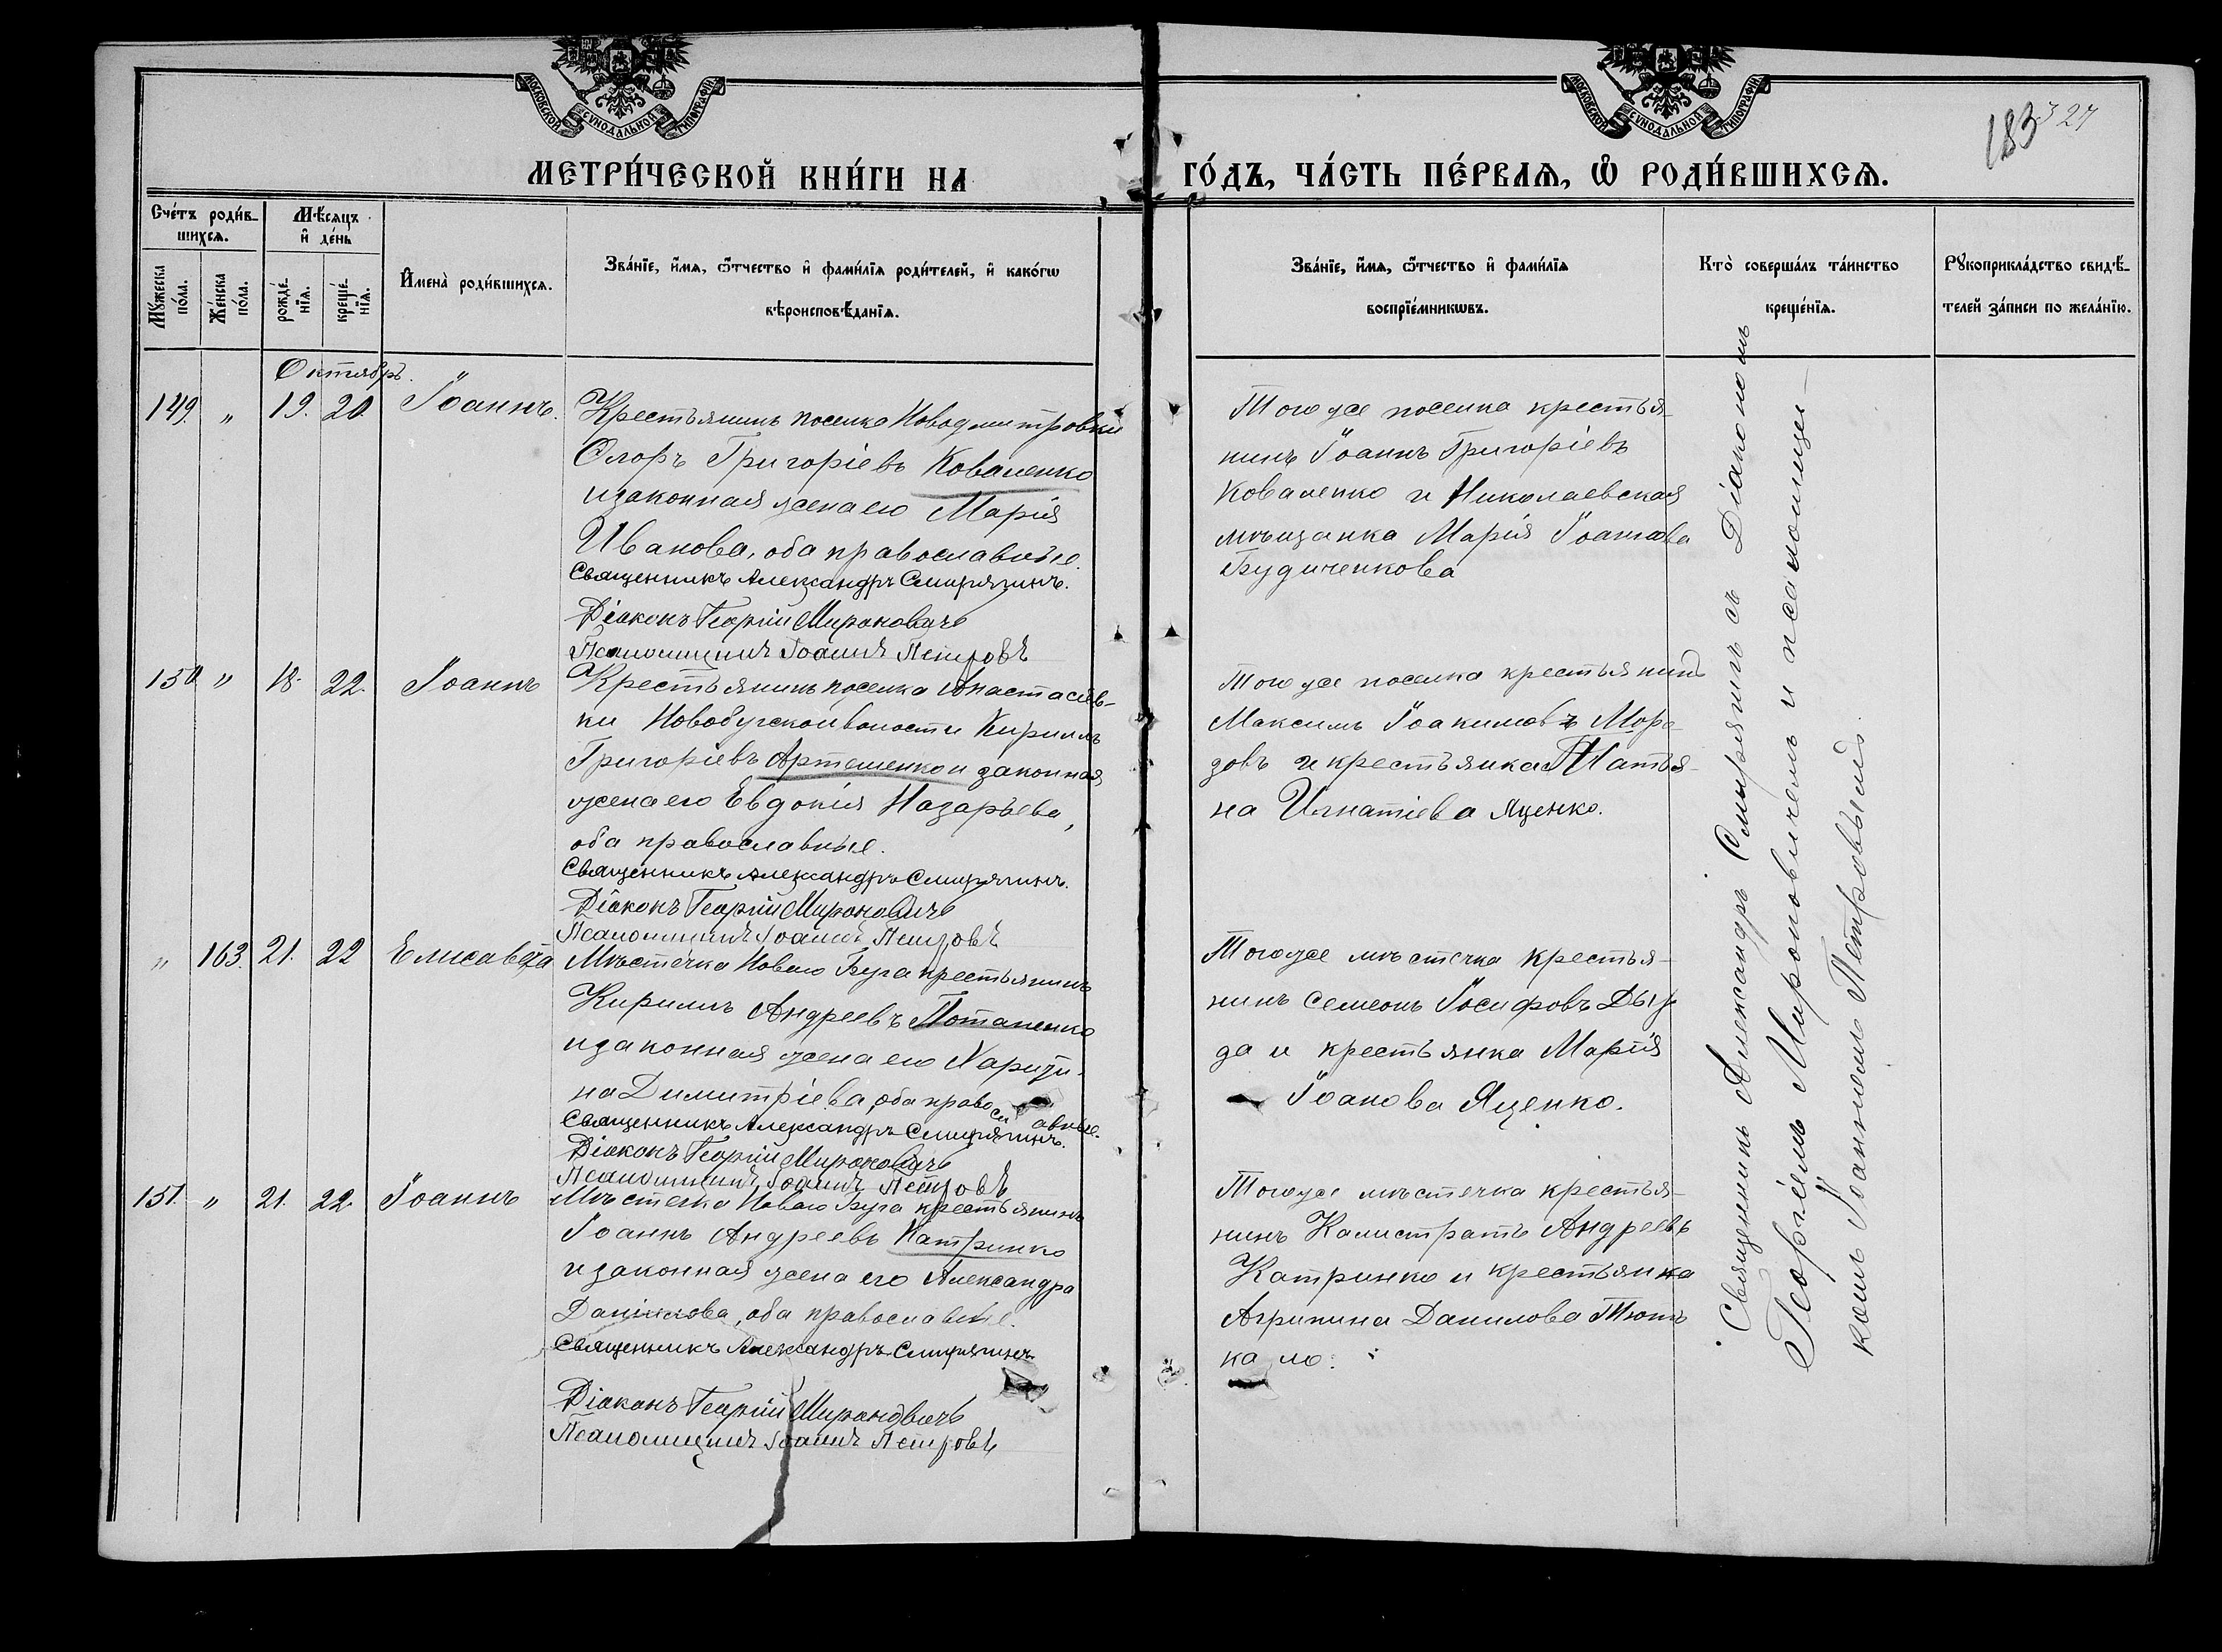 МОСКОВСКОЙ СУНОДАЛЬНОЙ ТИПОГРАФІИ
МОСКОВСКОЙ СУНОДАЛЬНОЙ ТИПОГРАФІИ
183 327
МЕТРИ́ЧЕСКОЙ КНИ́ГИ НА ГО́ДЪ, ЧА́СТЬ ПЕ́РВАѦ, Ѡ҆ РОДИ́ВШИХСѦ.
Сче́тъ роди́в-
шихсѧ.
Мѣ́сѧцъ
и҆ де́нь
Мꙋ́жеска
по́ла.
Же́нска
по́ла.
рожде́-
нїѧ.
креще́-
нїѧ.
И҆мена̀ роди́вшихсѧ.
Зва́нїе, и҆́мѧ, ѻ҆́тчество и҆ фами́лїѧ роди́телей, и҆ како́гѡ
вѣроисповѣ́данїѧ.
Зва́нїе, и҆́мѧ, ѻ҆́тчество и҆ фами́лїѧ
воспрїе́мникѡвъ.
Кто̀ соверша́лъ та́инство
креще́нїѧ.
Рꙋкоприкла́дство свидѣ́-
телей за́писи по жела́нїю.
Октябрь.
149. „ 19. 20. Іоаннъ.
Крестьянинъ поселка Новодмитровки
Флоръ Григоріевъ Коваленко
и законная жена его Марія
Иванова, оба православные.
Священникъ Александръ Смирягинъ.
Діаконъ Георгій Мироновичъ
Псаломщикъ Іоаннъ Петровъ
Того же поселка крестья-
нинъ Іоаннъ Григоріевъ
Коваленко и Николаевская
мѣщанка Марія Іоаннова
Будиченкова
150 „ 18. 22. Іоаннъ
Крестьянинъ поселка Анастасьев-
ки Новобугской волости Кириллъ
Григоріевъ Артеменко и законная
жена его Евдокія Назарьева,
оба православные.
Священникъ Александръ Смирягинъ.
Діаконъ Георгій Мироновичъ
Псаломщикъ Іоаннъ Петровъ
Того же поселка крестьянинъ
Максимъ Іоакимовъ Моро-
зовъ и крестьянка Татья-
на Игнатіева Яценко.
„ 163. 21. 22 Елисавета
Мѣстечка Новаго Буга крестьянинъ
Кириллъ Андреевъ Потапенко
и законная жена его Харити-
на Димитріева, оба православные.
Священникъ Александръ Смирягинъ.
Діаконъ Георгій Мироновичъ
Псаломщикъ Іоаннъ Петровъ
Того же мѣстечка крестья-
нинъ Семеонъ Іосифовъ Дыр
да и крестьянка Марія
Іоанова Яценко.
151. „ 21. 22. Іоаннъ
Мѣстечка Новаго Буга крестьянинъ
Іоаннъ Андреевъ Катринко
и законная жена его Александра
Даніилова, оба православные.
Священникъ Александръ Смирягинъ
Діаконъ Георгій Мироновичъ
Псаломщикъ Іоаннъ Петровъ
Того же мѣстечка крестья-
нинъ Калистратъ Андреевъ
Катринко и крестьянка
Агрипина Данилова Тют
кало.
Священникъ Александръ Смирягинъ съ Діакономъ
Георгіемъ Мироновичемъ и псаломщи-
комъ Іоанномъ Петровымъ.